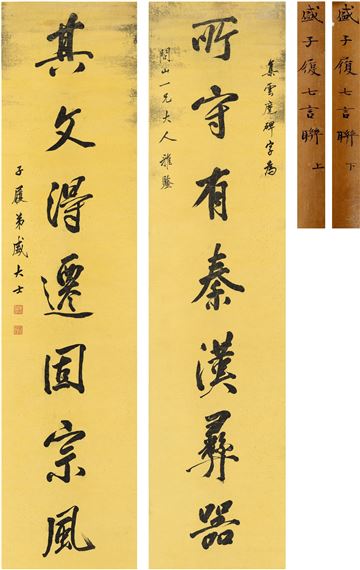 集雲麾碑字為
所守有秦漢彝器
問山一兄大人雅鑒
其文得遷固宗風
子履弟盛大士
盛子履七言聯 上
盛子履七言聯 下